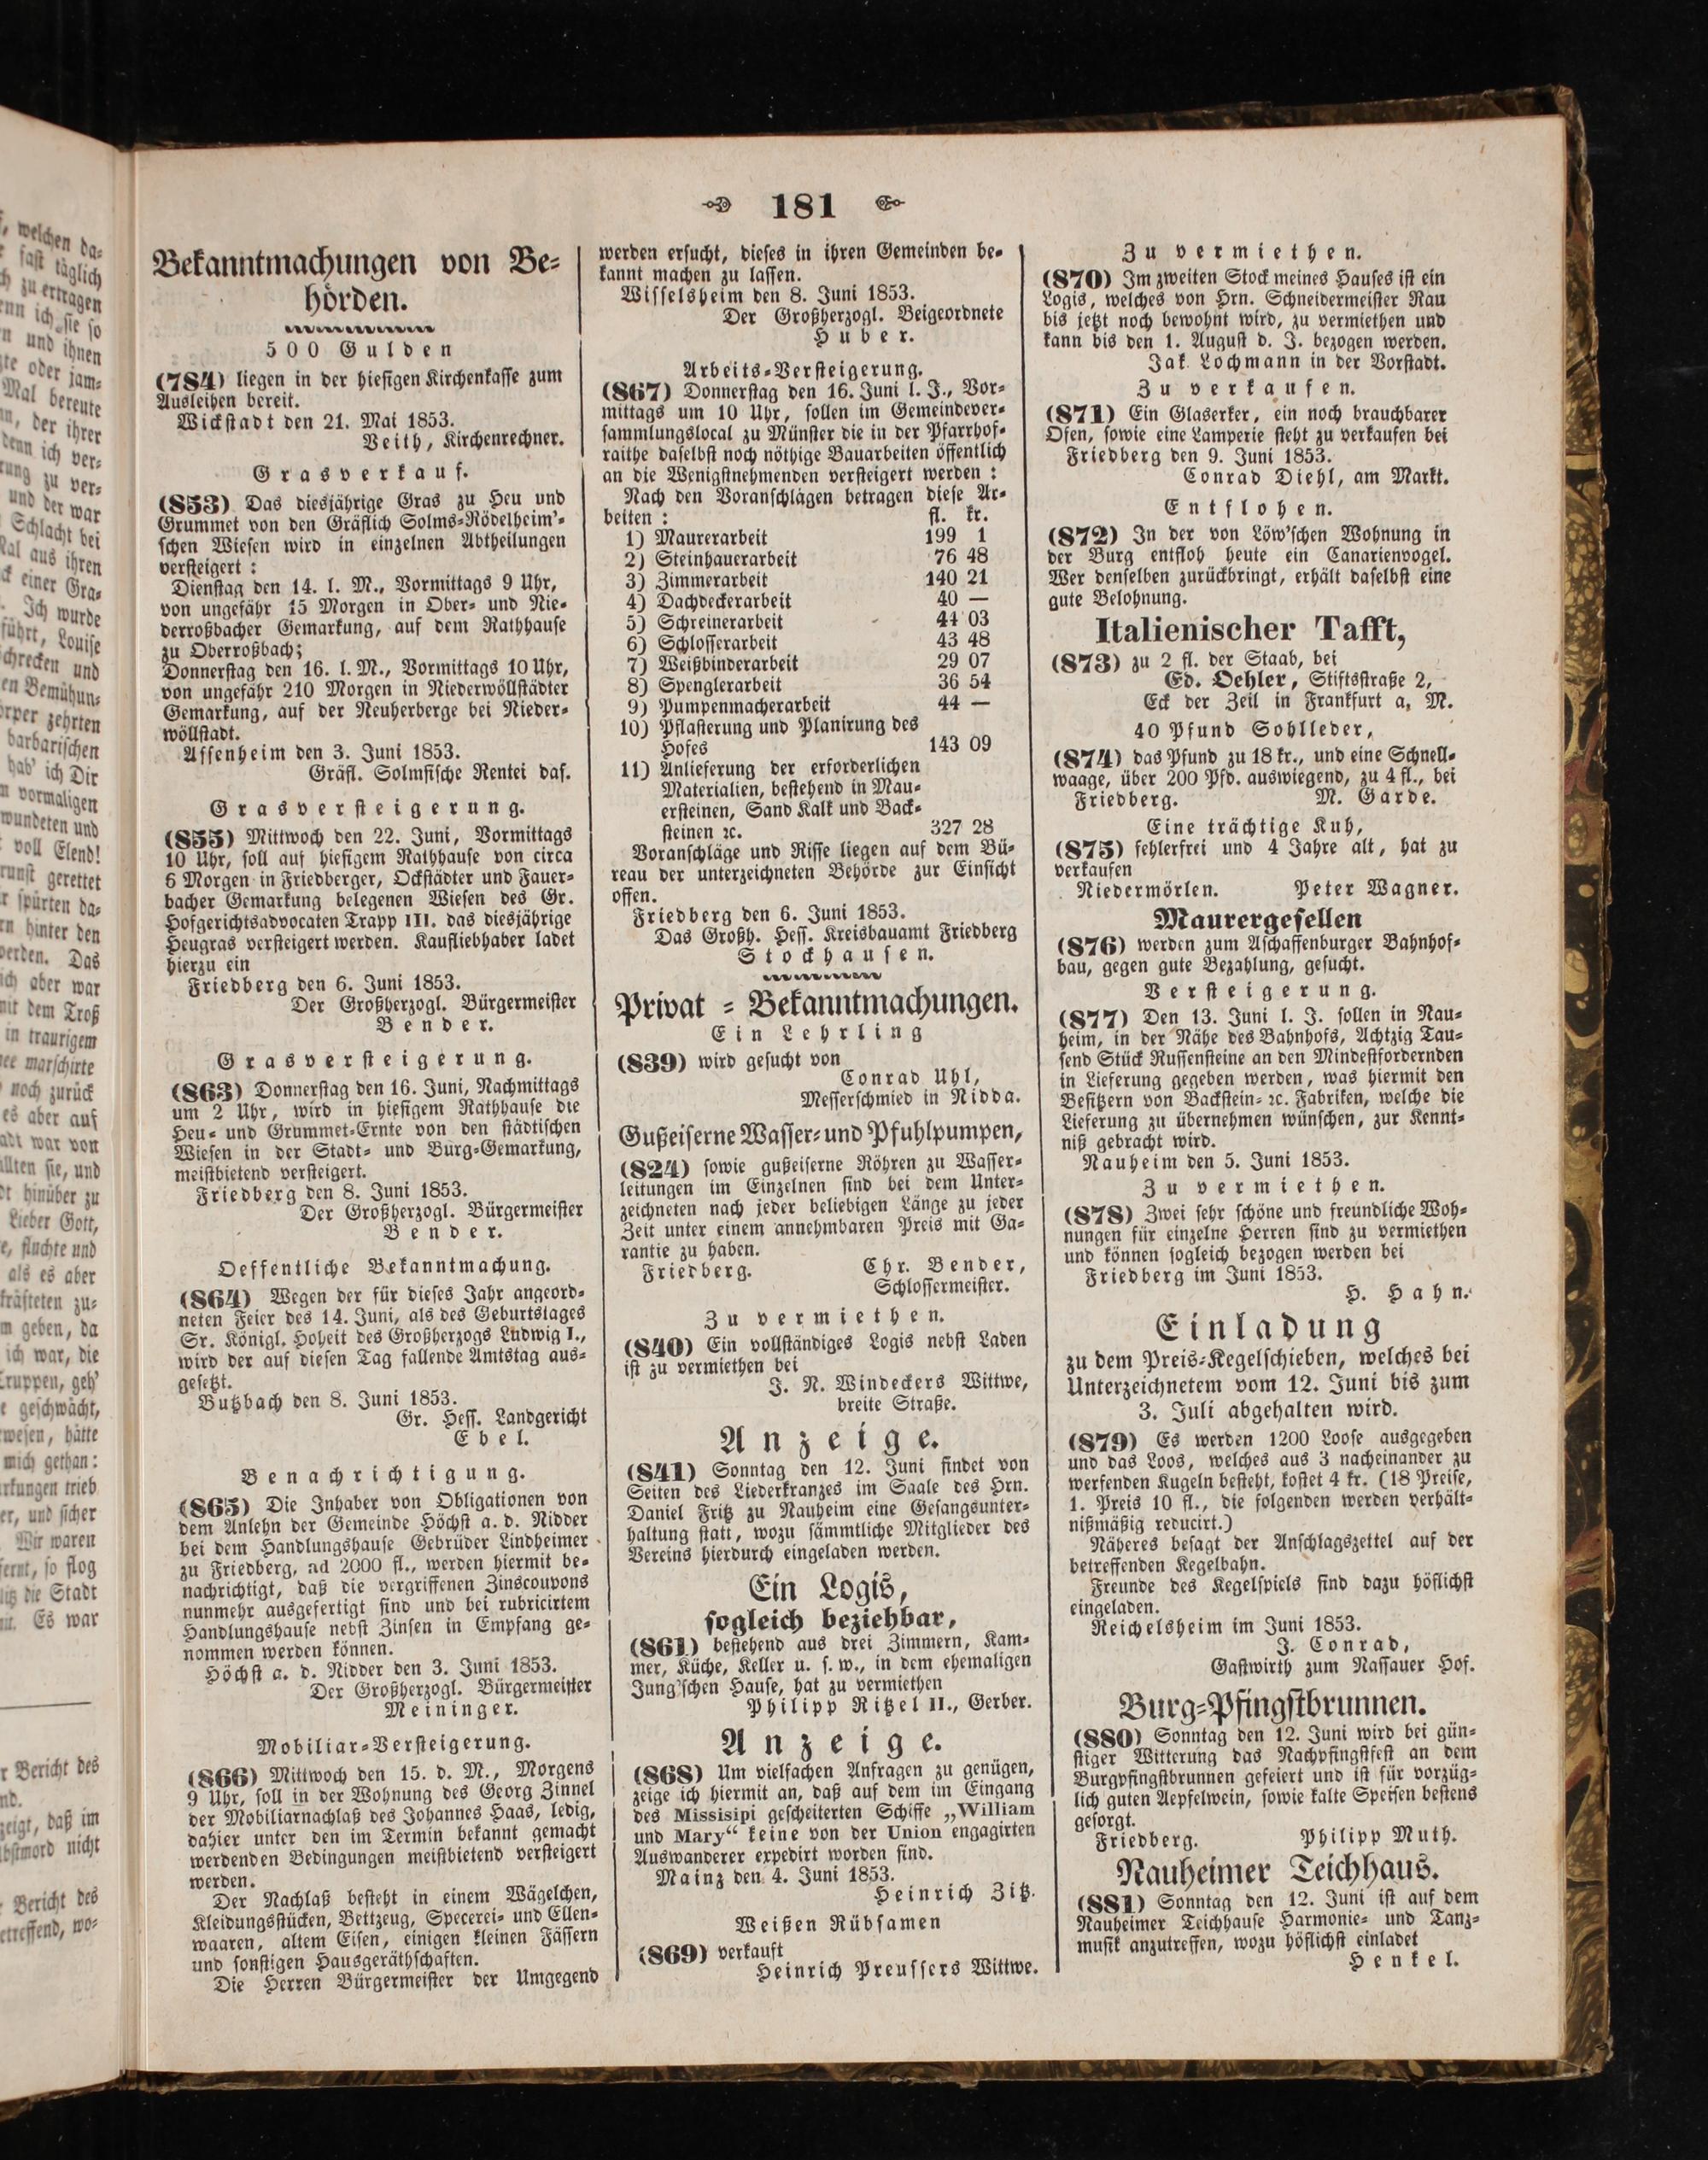 181
Bekanntmachungen von Be-
hörden.
500 Gulden
(784) liegen in der hiesigen Kirchenkasse zum
Ausleihen bereit.
Wickstadt den 21. Mai 1853.
Veith, Kirchenrechner.
Grasverkauf.
(853) Das diesjährige Gras zu Heu und
Grummet von den Gräflich Solms-Rödelheim'-
schen Wiesen wird in einzelnen Abtheilungen
versteigert:
Dienstag den 14. l. M., Vormittags 9 Uhr,
von ungefähr 15 Morgen in Ober- und Nie-
derroßbacher Gemarkung, auf dem Rathhause
zu Oberroßbach;
Donnerstag den 16. l. M., Vormittags 10 Uhr,
von ungefähr 210 Morgen in Niederwöllstädter
Gemarkung, auf der Neuherberge bei Nieder-
wöllstadt.
Assenheim den 3. Juni 1853.
Gräfl. Solmsische Rentei das.
Grasversteigerung.
(855) Mittwoch den 22. Juni, Vormittags
10 Uhr, soll auf hiesigem Rathhause von circa
6 Morgen in Friedberger, Ockstädter und Fauer-
bacher Gemarkung belegenen Wiesen des Gr.
Hofgerichtsadvocaten Trapp III. das diesjährige
Heugras versteigert werden. Kaufliebhaber ladet
hierzu ein
Friedberg den 6. Juni 1853.
Der Großherzogl. Bürgermeister
Bender.
Grasversteigerung.
(863) Donnerstag den 16. Juni, Nachmittags
um 2 Uhr, wird in hiesigem Rathhause die
Heu- und Grummet-Ernte von den städtischen
Wiesen in der Stadt- und Burg-Gemarkung,
meistbietend versteigert.
Friedberg den 8. Juni 1853.
Der Großherzogl. Bürgermeister
Bender.
Oeffentliche Bekanntmachung.
(864) Wegen der für dieses Jahr angeord-
neten Feier des 14. Juni, als des Geburtstages
Sr. Königl. Hoheit des Großherzogs Ludwig I.,
wird der auf diesen Tag fallende Amtstag aus-
gesetzt.
Butzbach den 8. Juni 1853.
Gr. Hess. Landgericht
Ebel.
Benachrichtigung.
(865) Die Inhaber von Obligationen von
dem Anlehn der Gemeinde Höchst a. d. Nidder
bei dem Handlungshause Gebrüder Lindheimer
zu Friedberg, ad 2000 fl., werden hiermit be-
nachrichtigt, daß die vergriffenen Zinscoupons
nunmehr ausgefertigt sind und bei rubricirtem
Handlungshause nebst Zinsen in Empfang ge-
nommen werden können.
Höchst a. d. Nidder den 3. Juni 1853.
Der Großherzogl. Bürgermeister
Meininger.
Mobiliar-Versteigerung.
(866) Mittwoch den 15. d. M., Morgens
9 Uhr, soll in der Wohnung des Georg Zinnel
der Mobiliarnachlaß des Johannes Haas, ledig,
dahier unter den im Termin bekannt gemacht
werdenden Bedingungen meistbietend versteigert
werden.
Der Nachlaß besteht in einem Wägelchen,
Kleidungsstücken, Bettzeug, Specerei- und Ellen-
waaren, altem Eisen, einigen kleinen Fässern
und sonstigen Hausgeräthschaften.
Die Herren Bürgermeister der Umgegend
werden ersucht, dieses in ihren Gemeinden be-
kannt machen zu lassen.
Wisselsheim den 8. Juni 1853.
Der Großherzogl. Beigeordnete
Huber.
Arbeits-Versteigerung.
(867) Donnerstag den 16. Juni l. J., Vor-
mittags um 10 Uhr, sollen im Gemeindever-
sammlungslocal zu Münster die in der Pfarrhof-
raithe daselbst noch nöthige Bauarbeiten öffentlich
an die Wenigstnehmenden versteigert werden:
Nach den Voranschlägen betragen diese Ar-
beiten: fl. kr.
1) Maurerarbeit 199 1
2) Steinhauerarbeit 76 48
3) Zimmerarbeit 140 21
4) Dachdeckerarbeit 40 —
5) Schreinerarbeit 44 03
6) Schlosserarbeit 43 48
7) Weißbinderarbeit 29 07
8) Spenglerarbeit 36 54
9) Pumpenmacherarbeit 44 —
10) Pflasterung und Planirung des
Hofes 143 09
11) Anlieferung der erforderlichen
Materialien, bestehend in Mau-
ersteinen, Sand Kalk und Back-
steinen ꝛc. 327 28
Voranschläge und Risse liegen auf dem Bü-
reau der unterzeichneten Behörde zur Einsicht
offen.
Friedberg den 6. Juni 1853.
Das Großh. Hess. Kreisbauamt Friedberg
Stockhausen.
Privat-Bekanntmachungen.
Ein Lehrling
(839) wird gesucht von
Conrad Uhl,
Messerschmied in Nidda.
Gußeiserne Wasser- und Pfuhlpumpen,
(824) sowie gußeiserne Röhren zu Wasser-
leitungen im Einzelnen sind bei dem Unter-
zeichneten nach jeder beliebigen Länge zu jeder
Zeit unter einem annehmbaren Preis mit Ga-
rantie zu haben.
Friedberg. Chr. Bender,
Schlossermeister.
Zu vermiethen.
(840) Ein vollständiges Logis nebst Laden
ist zu vermiethen bei
J. N. Windeckers Wittwe,
breite Straße.
Anzeige.
(841) Sonntag den 12. Juni findet von
Seiten des Liederkranzes im Saale des Hrn.
Daniel Fritz zu Nauheim eine Gesangsunter-
haltung statt, wozu sämmtliche Mitglieder des
Vereins hierdurch eingeladen werden.
Ein Logis,
sogleich beziehbar,
(861) bestehend aus drei Zimmern, Kam-
mer, Küche, Keller u. s. w., in dem ehemaligen
Jung'schen Hause, hat zu vermiethen
Philipp Ritzel II., Gerber.
Anzeige.
(868) Um vielfachen Anfragen zu genügen,
zeige ich hiermit an, daß auf dem im Eingang
des Missisipi gescheiterten Schiffe „William
und Mary“ keine von der Union engagirten
Auswanderer expedirt worden sind.
Mainz den 4. Juni 1853.
Heinrich Zitz.
Weißen Rübsamen
(869) verkauft
Heinrich Preussers Wittwe.
Zu vermiethen.
(870) Im zweiten Stock meines Hauses ist ein
Logis, welches von Hrn. Schneidermeister Rau
bis jetzt noch bewohnt wird, zu vermiethen und
kann bis den 1. August d. J. bezogen werden.
Jak. Lochmann in der Vorstadt.
Zu verkaufen.
(871) Ein Glaserker, ein noch brauchbarer
Ofen, sowie eine Lamperie steht zu verkaufen bei
Friedberg den 9. Juni 1853.
Conrad Diehl, am Markt.
Entflohen.
(872) In der von Löw'schen Wohnung in
der Burg entfloh heute ein Canarienvogel.
Wer denselben zurückbringt, erhält daselbst eine
gute Belohnung.
Italienischer Tafft,
(873) zu 2 fl. der Staab, bei
Ed. Oehler, Stiftsstraße 2,
Eck der Zeil in Frankfurt a, M.
40 Pfund Sohlleder,
(874) das Pfund zu 18 kr., und eine Schnell-
waage, über 200 Pfd. auswiegend, zu 4 fl., bei
Friedberg. M. Garde.
Eine trächtige Kuh,
(875) fehlerfrei und 4 Jahre alt, hat zu
verkaufen
Niedermörlen. Peter Wagner.
Maurergesellen
(876) werden zum Aschaffenburger Bahnhof-
bau, gegen gute Bezahlung, gesucht.
Versteigerung.
(877) Den 13. Juni l. J. sollen in Nau-
heim, in der Nähe des Bahnhofs, Achtzig Tau-
send Stück Russensteine an den Mindestfordernden
in Lieferung gegeben werden, was hiermit den
Besitzern von Backstein- ꝛc. Fabriken, welche die
Lieferung zu übernehmen wünschen, zur Kennt-
niß gebracht wird.
Nauheim den 5. Juni 1853.
Zu vermiethen.
(878) Zwei sehr schöne und freundliche Woh-
nungen für einzelne Herren sind zu vermiethen
und können sogleich bezogen werden bei
Friedberg im Juni 1853.
H. Hahn.
Einladung
zu dem Preis-Kegelschieben, welches bei
Unterzeichnetem vom 12. Juni bis zum
3. Juli abgehalten wird.
(879) Es werden 1200 Loose ausgegeben
und das Loos, welches aus 3 nacheinander zu
werfenden Kugeln besteht, kostet 4 kr. (18 Preise,
1. Preis 10 fl., die folgenden werden verhält-
nißmäßig reducirt.)
Näheres besagt der Anschlagszettel auf der
betreffenden Kegelbahn.
Freunde des Kegelspiels sind dazu höflichst
eingeladen.
Reichelsheim im Juni 1853.
J. Conrad,
Gastwirth zum Nassauer Hof.
Burg-Pfingstbrunnen.
(880) Sonntag den 12. Juni wird bei gün-
stiger Witterung das Nachpfingstfest an dem
Burgpfingstbrunnen gefeiert und ist für vorzüg-
lich guten Aepfelwein, sowie kalte Speisen bestens
gesorgt.
Friedberg. Philipp Muth.
Nauheimer Teichhaus.
(881) Sonntag den 12. Juni ist auf dem
Nauheimer Teichhause Harmonie- und Tanz-
musik anzutreffen, wozu höflichst einladet
Henkel.